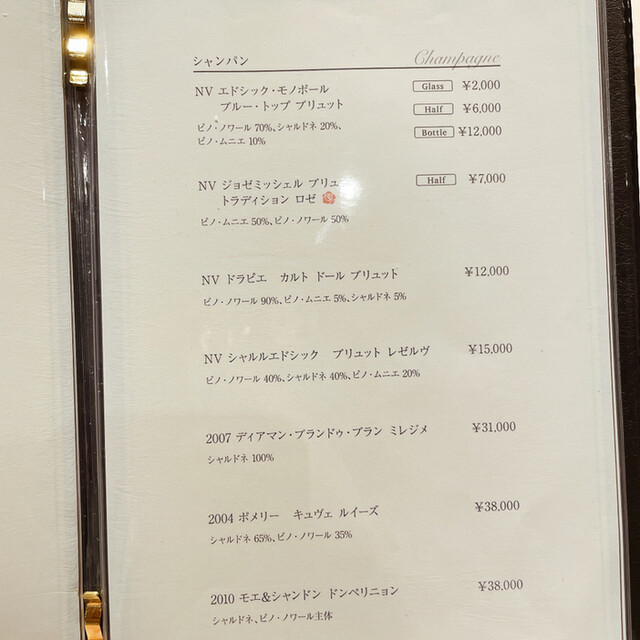 シャンパン Champagne
NV エドシック・モノポール Glass ¥2,000
ブルー・トップ ブリュット Half ¥6,000
ピノ・ノワール 70%、シャルドネ 20%、 Bottle ¥12,000
ピノ・ムニエ 10%
NV ジョゼミッシェル ブリュ Half ¥7,000
トラディション ロゼ
ピノ・ムニエ 50%、ピノ・ノワール 50%
NV ドラピエ カルト ドール ブリュット ¥12,000
ピノ・ノワール 90%、ピノ・ムニエ 5%、シャルドネ 5%
NV シャルルエドシック ブリュット レゼルヴ ¥15,000
ピノ・ノワール 40%、シャルドネ 40%、ピノ・ムニエ 20%
2007 ディアマン・ブランドゥ・ブラン ミレジメ ¥31,000
シャルドネ 100%
2004 ポメリー キュヴェ ルイーズ ¥38,000
シャルドネ 65%、ピノ・ノワール 35%
2010 モエ&シャンドン ドンペリニョン ¥38,000
シャルドネ、ピノ・ノワール主体